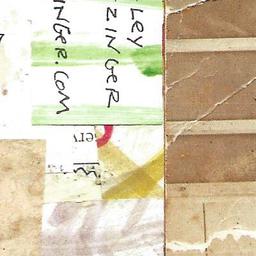 LEY
ZINGER
INGER.COM